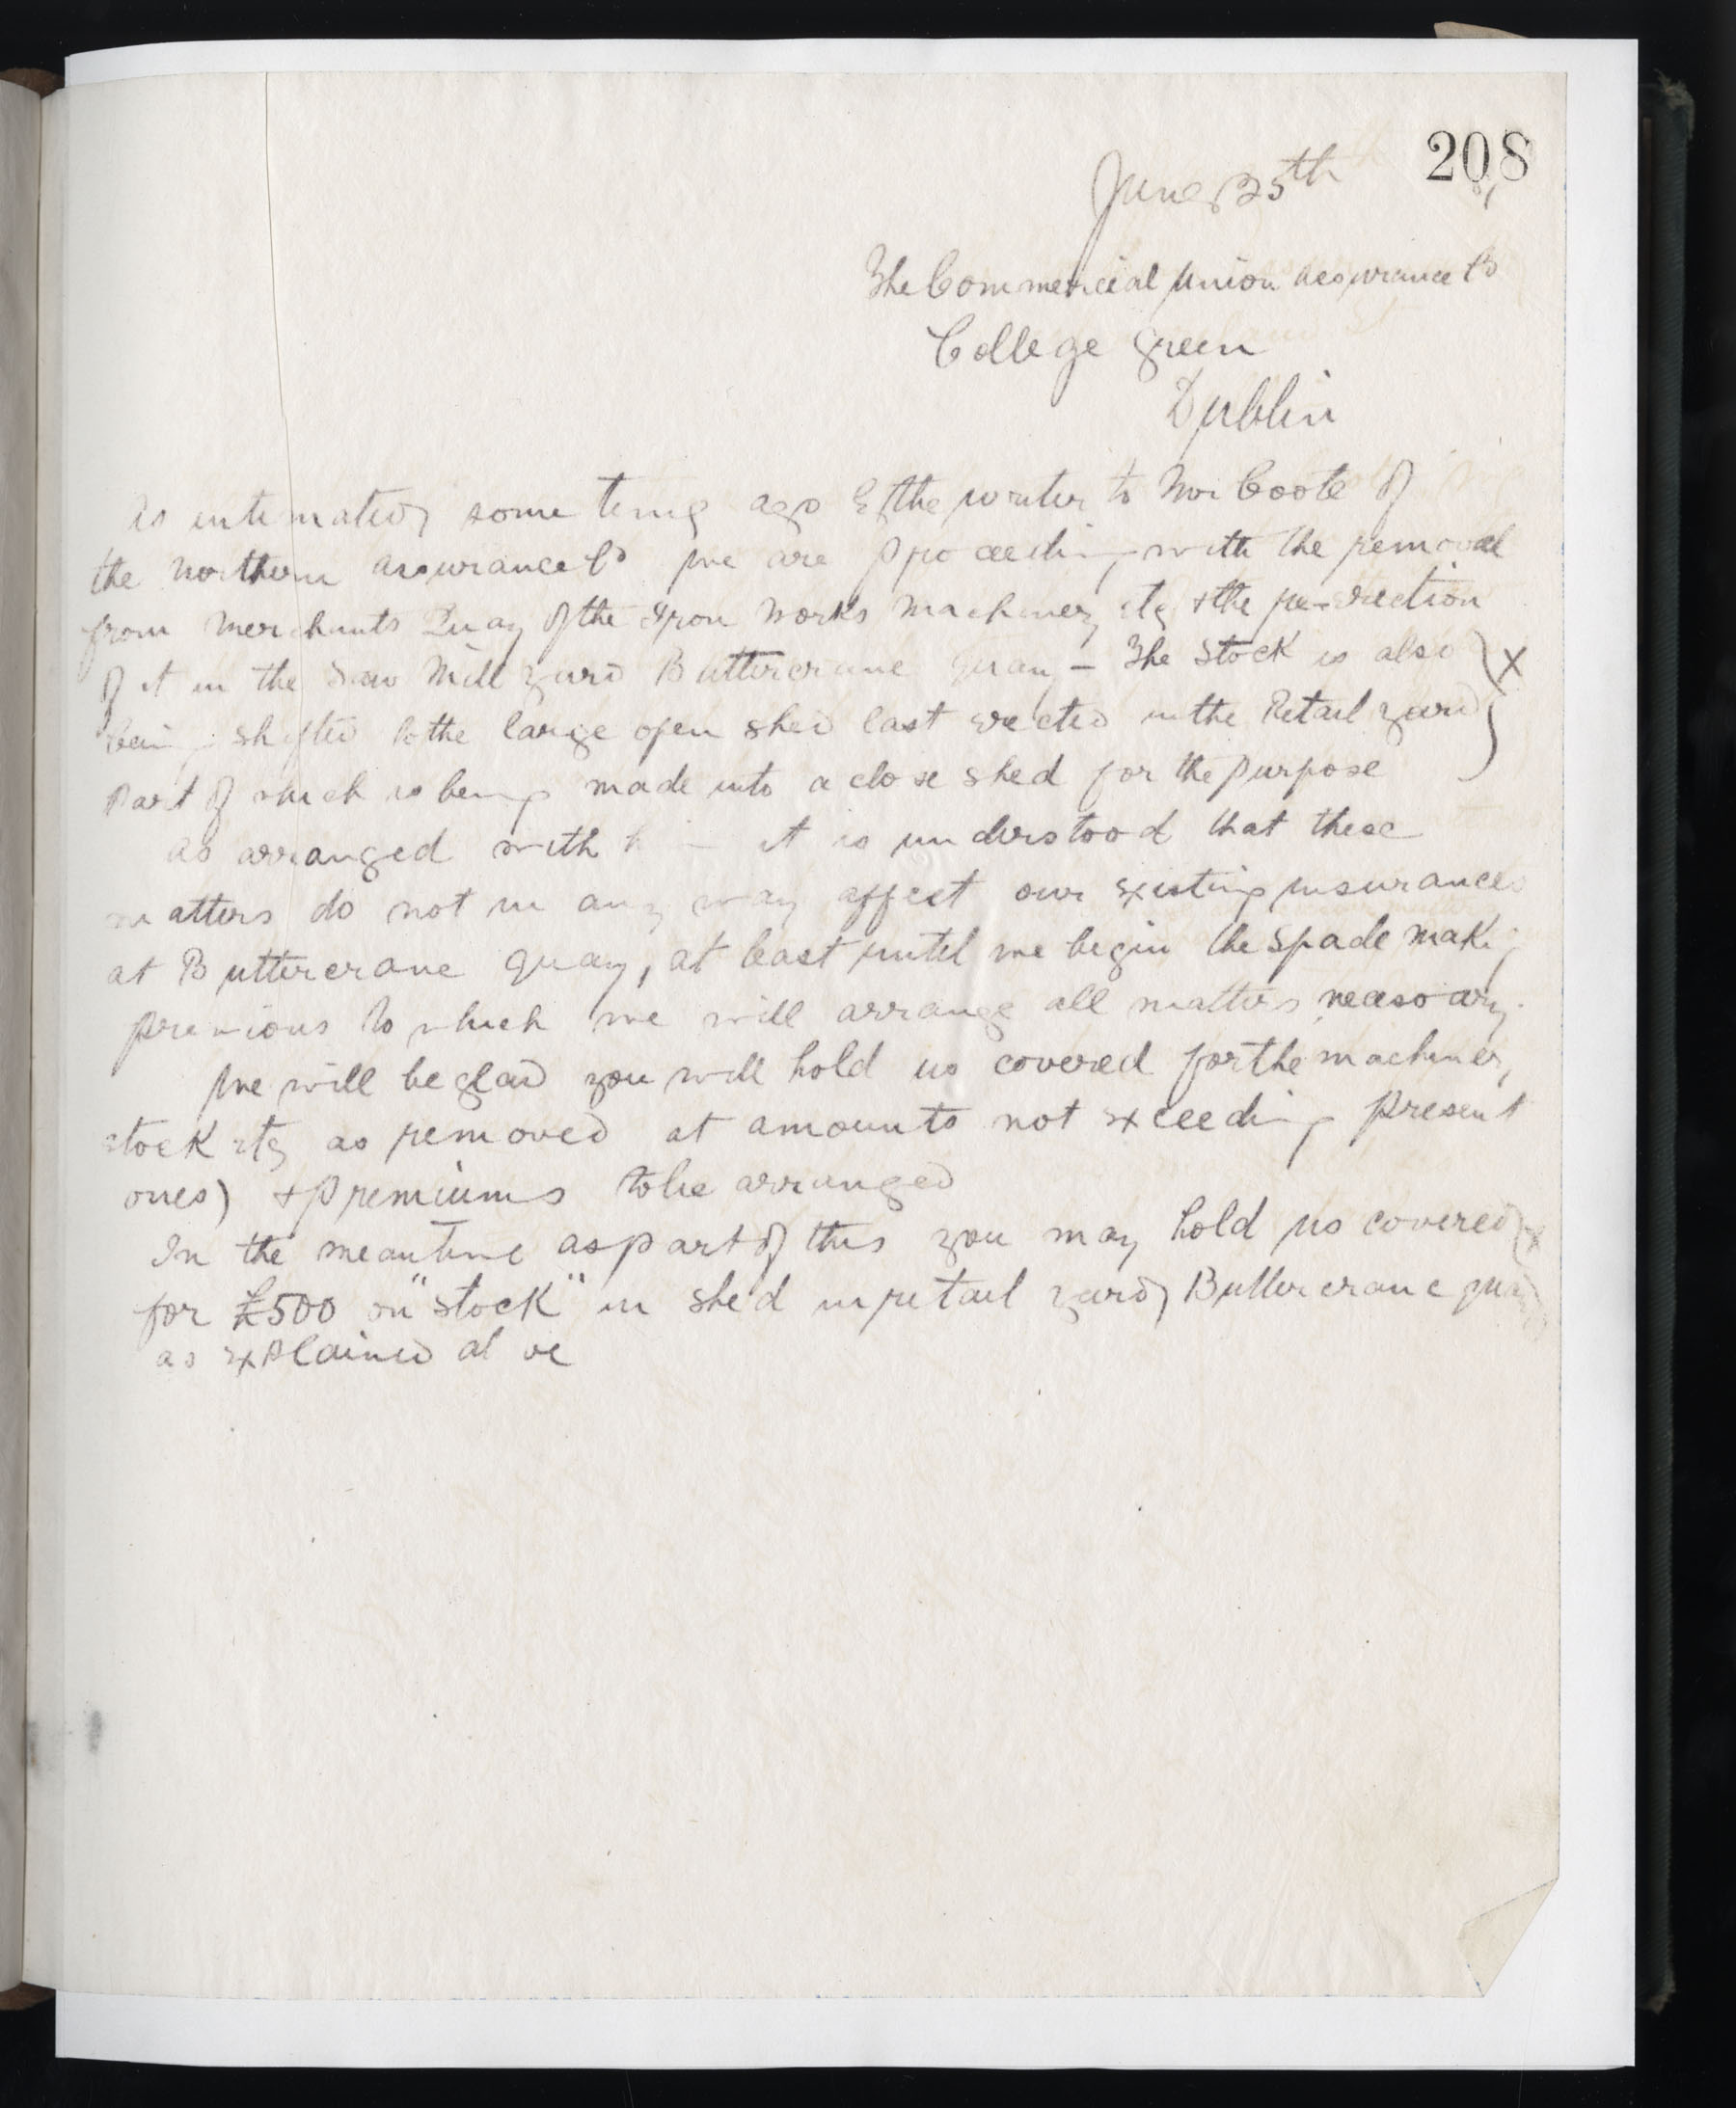 208
June 25th
The Commercial Union Assurance Co
College Green
Dublin
As intimated some time ago by the writer to Mr Coote of
the Northern Assurance Co we are proceeding with the removal
from Merchants Quay of the Iron Works Machinery etc & the re-erection
of it in the Saw Mill yard Buttercrane Quay - The Stock is also
being shifted to the large open shed last erected in the Retail yard
part of which is being made into a close shed for the purpose
As arranged with it is understood that these
matters do not in any way affect our existing insurances
at Buttercrane Quay, at least until we begin the Spade making
previous to which we will arrange all matters necessary.
We will be glad you will hold us covered for the machinery,
stock etc as removed at amounts not exceeding present
ones) & premiums to be arranged
In the meantime as part of this you may hold us covered
for £500 on "stock" in shed in retail yard, Buttercrane Quay
as explained above